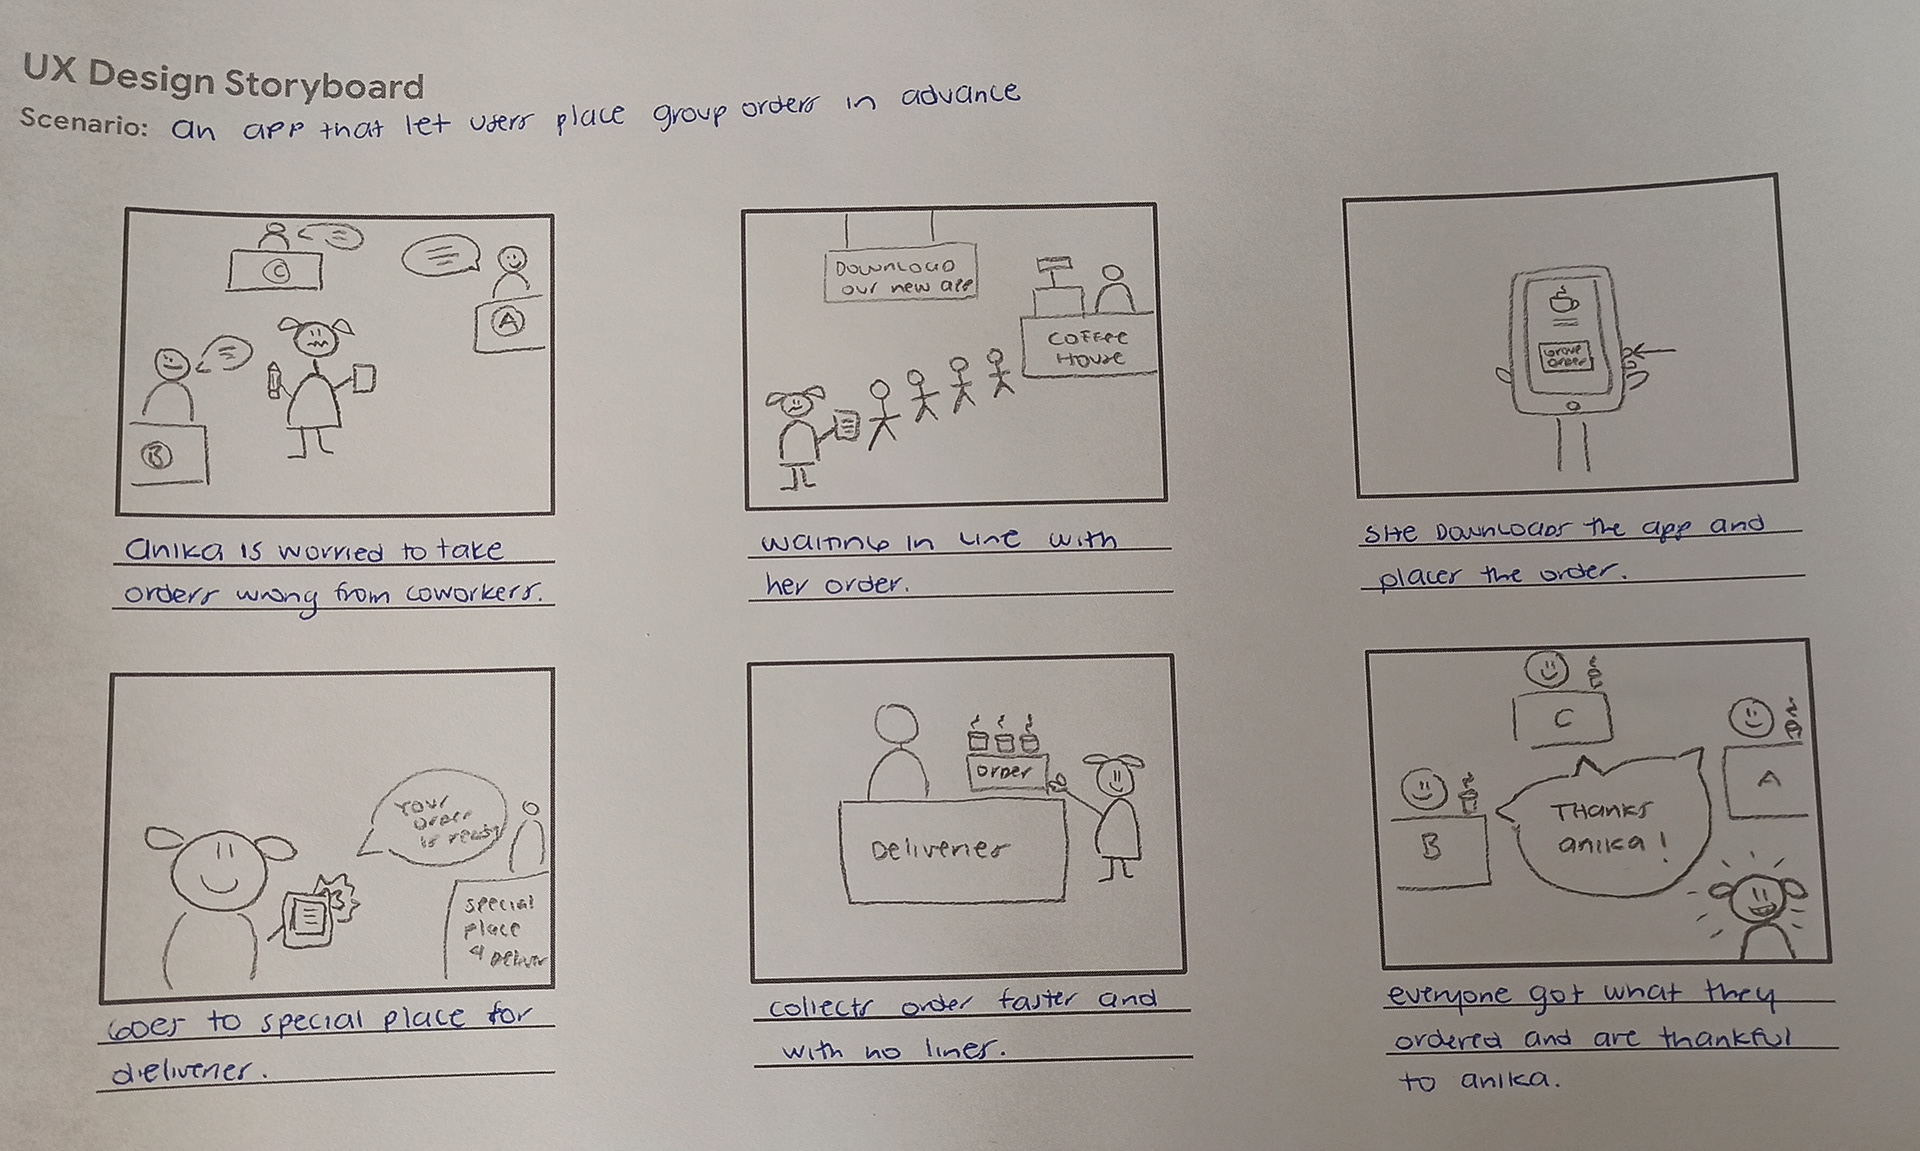 UX Design Storyboard
Scenario: an app that let users place group orders in advance
C
A
B
Anika is worried to take
orders wrong from coworkers.
DOWNLOAD
our new app
COFFEE
HOUSE
Waiting in line with
her order.
Group
Order
She Downloads the app and
places the order.
Your
Order
is ready
Special
place
4 Deliver
Goes to special place for
deliveries.
Order
Deliveries
collects order faster and
with no lines.
C
A
B
THANKS
anika!
everyone got what they
ordered and are thankful
to anika.